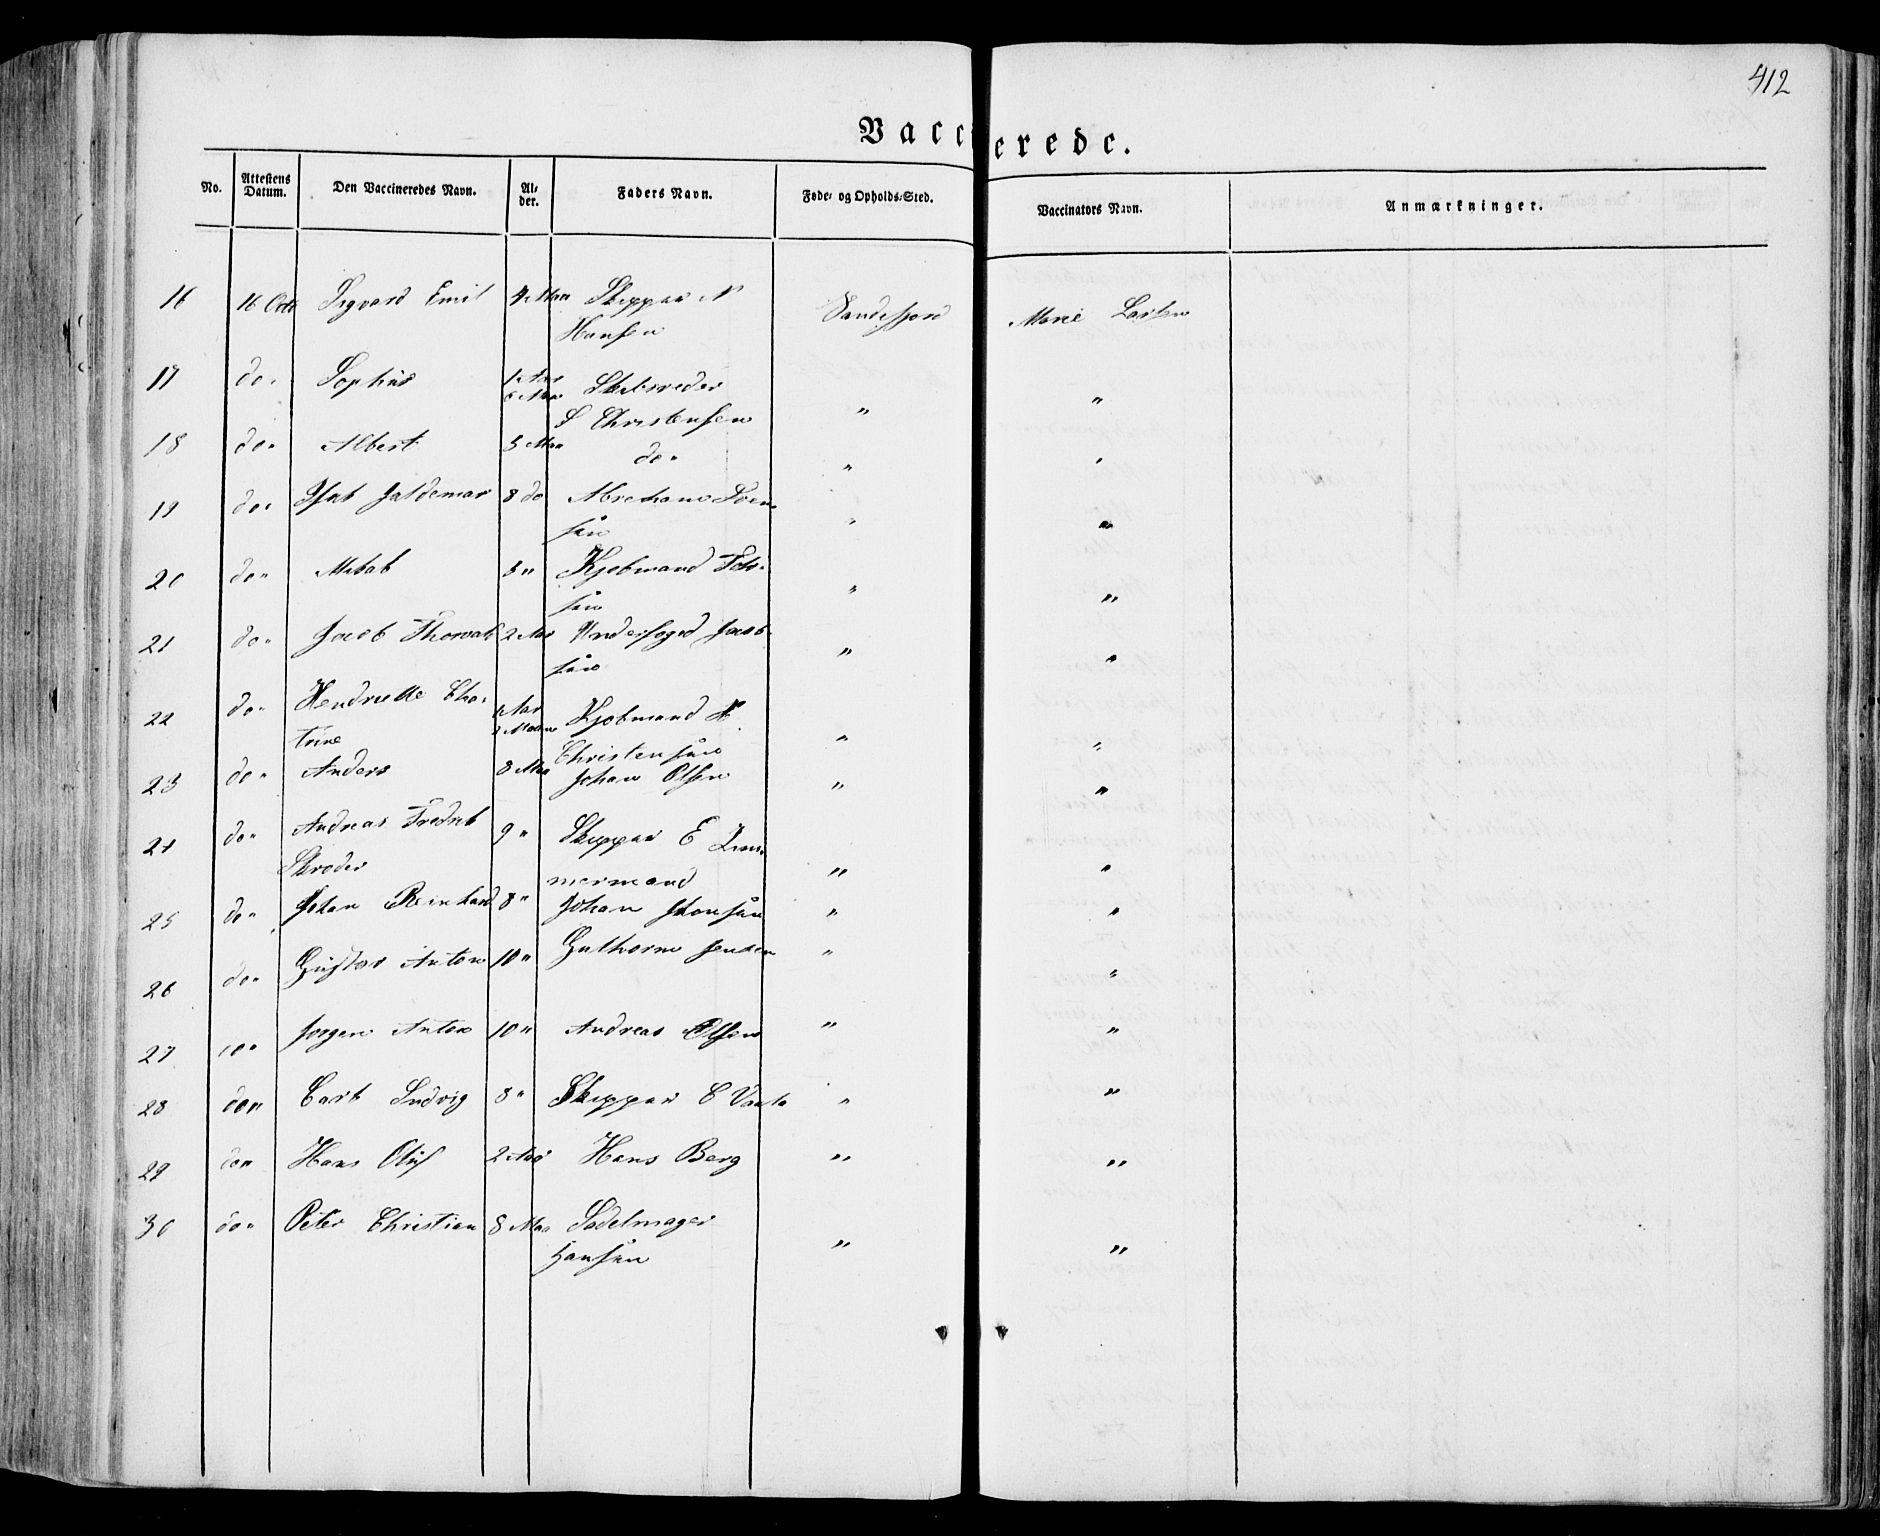 412
Vaccinerede.
No. Attestens Datum. Den Vaccineredes Navn. Al- der. Faders Navn. Føde- og Opholds-Sted. Vaccinators Navn. Anmærkninger.
16 16 Octb Sigvard Emil 4 Maa Skipper N Sandefjord Marie Larsen
Hansen
17 do. Sophus 1 Aar Skibsreder
6 Maa S Christensen " "
18 do" Albert 3 Maa do" " "
19 do. Valdemar 8 do Abraham Soen " "
sen
20 do" 8" Kjøbmand " "
sen
21 do" Jacob Thorvald 2 Aar Underfoged Jacob- " "
sen
22 do" Hendriette Cha- 1 Aar Kjøbmand H " "
trine 2 Maan Christensen
23 do" Anders 8 Maa Johan Olsen " "
24 do" Andreas Fredrik 9" Skipper E Zim-
Skrøder mermand " "
25 do" Johan Reinhard 8" Johan Hansen " "
26 do" Gustav Anton 10" Guthorm Jensen " "
27 do" Jørgen Anton 10" Andreas Olsen " "
28 do" Carl Ludvig 8" Skipper C " "
29 do" Hans Oluf 2 Aar Hans Berg " "
30 do" Peter Christian 8 Maa Sadelmager
Hansen " "